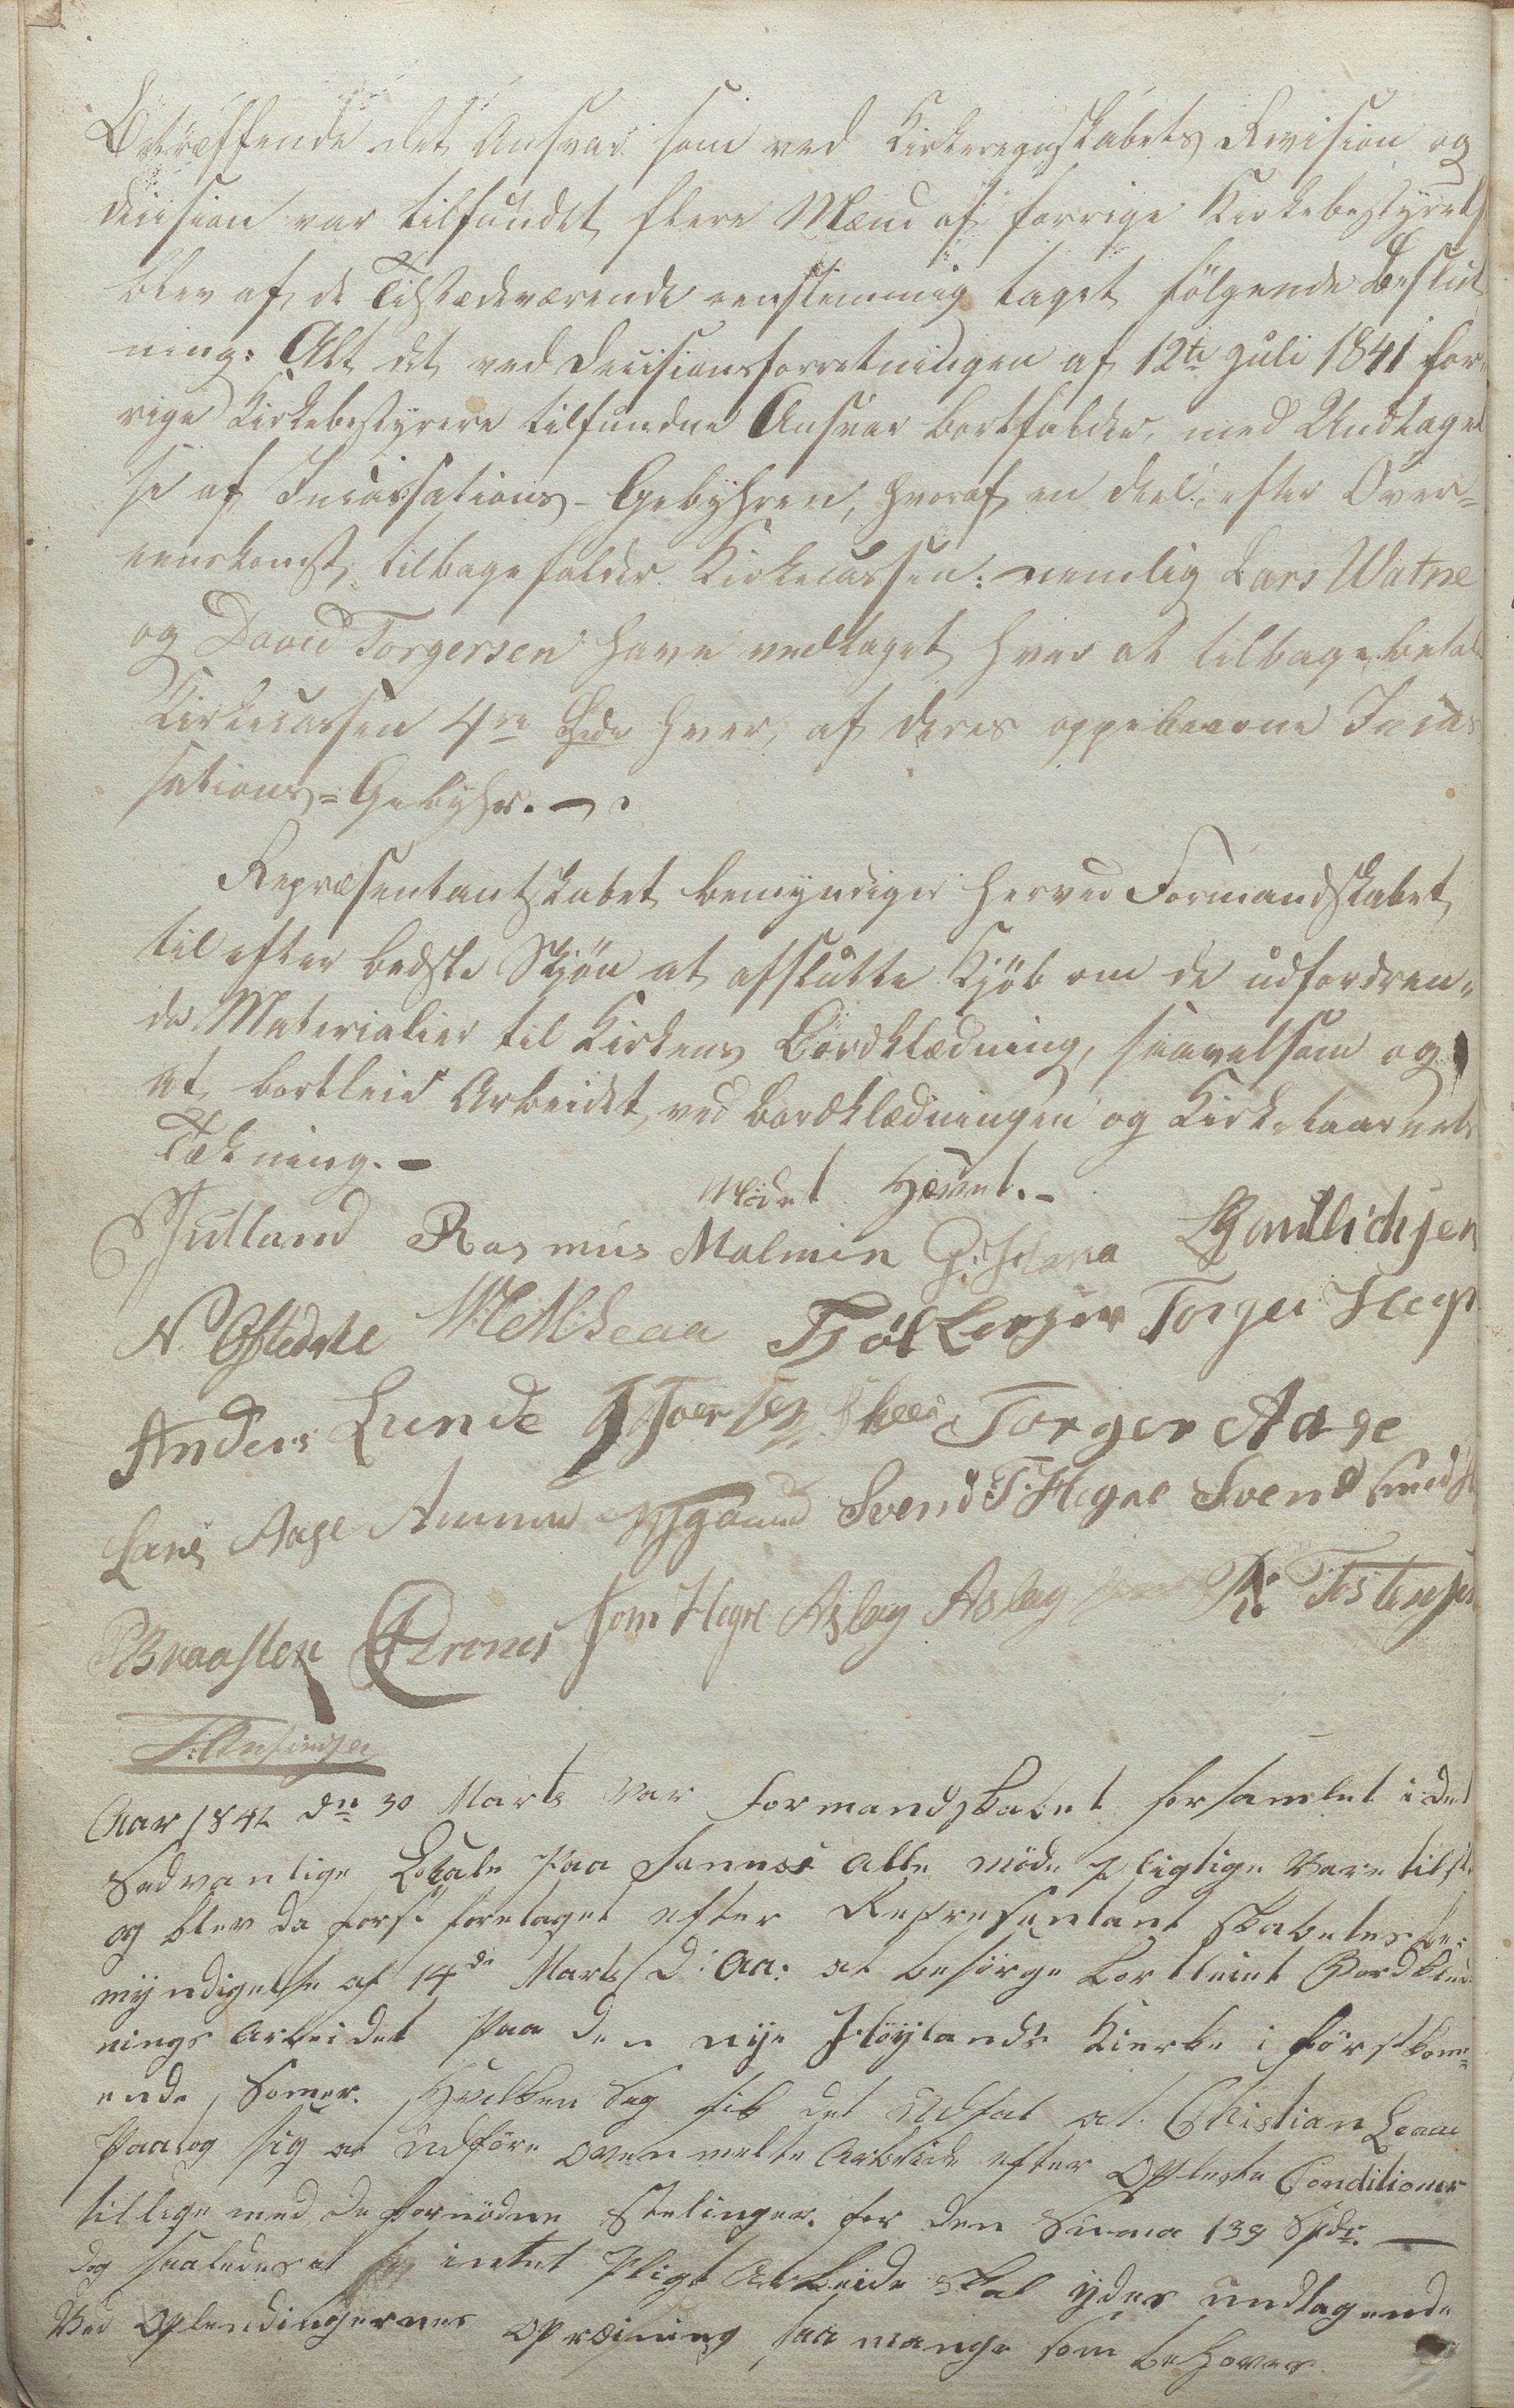 Betræffende det Ansvar som ved Kirkeregnskabets Revision og
Decision var tilfundet flere Mænd af forrige Kirkebestyrels
blev af de Tilstædeværende eenstemmig taget følgende Beslut
ning: Alt det ved Decisionsforretningen af 12te Juli 1841 for-
rige Kirkebestyrere tilfundne Ansvar bortfalder, med Undtagel
se af Incassations-Gebyhren, hvoraf en deel, efter Over-
eenskomst, tilbagefalder Kirkecassen: nemlig Lars Watne
og David Torgersen have vedtaget hver at tilbagebetal
Kirkecassen 4re Spdr hver, af deres oppebaarne Incas
sations-Gebyhr. —
Repræsentantskabet bemyndiger herved Formandskabet
til efter bedste Skjøn at afslutte Kjøb om de udfordren-
de Materialier til Kirkens Bordklædning, saavelsom og
at bortleie Arbeidet ved Bordklædningen og Kirketaarnets
Tækning. —
Mødet Hævet. —
Jutland Rasmus Malmin G. Gudlichsen
N. Ostedahl Torger Hegr
Anders Lunde Torger Aase
Lars Aase Svend T. Hegre Svend
Braasten Tom Hegre Aslag Aslag Tostensen
Aar 1842 dn 30 Marts var Formandskabet forsamlet i det
Sedvanlige Lokale paa Sannes alle møde Pligtige vare tilst
og blev da først foretaget efter Representant skabetes be-
myndigelse af 14de Marts d: Aa: at besørge bortleiet Bordklæd
nings arbeidet paa den nye Høylands Kierke i førstkom-
ende Somer. Hvilken Sag fik det Udfal at Christian Leaae
Paatog sig at udføre ovenmelte Arbeide efter Opleste Conditioner
tillige med de fornødne Stelinger. for den Suma 139 Spdr. —
dog saaledes at intet Pligt Arbeide skal ydes undtagende
Ved Oplendingernes opræisning saa mange som behøves